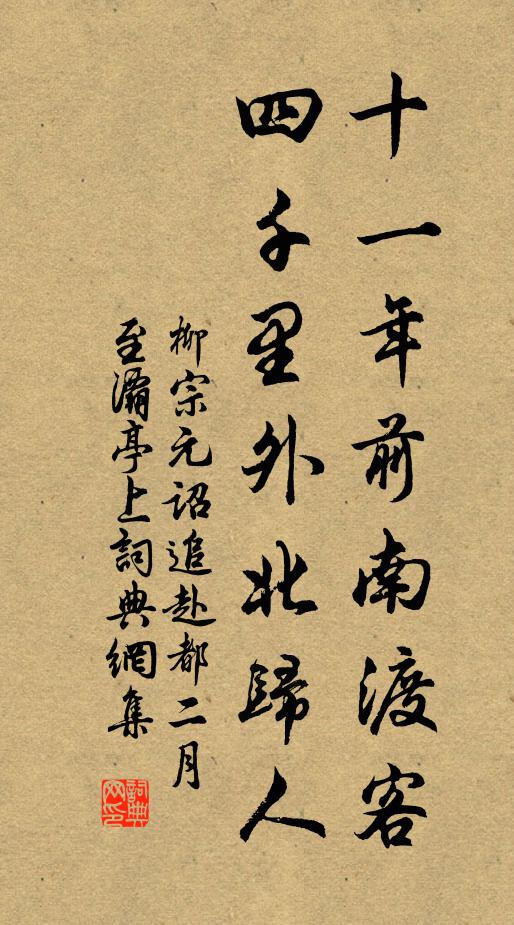 十一年前南渡客
四千里外北歸人
柳宗元詔追赴都二月
至灞亭上詞典網集
詞典
网印